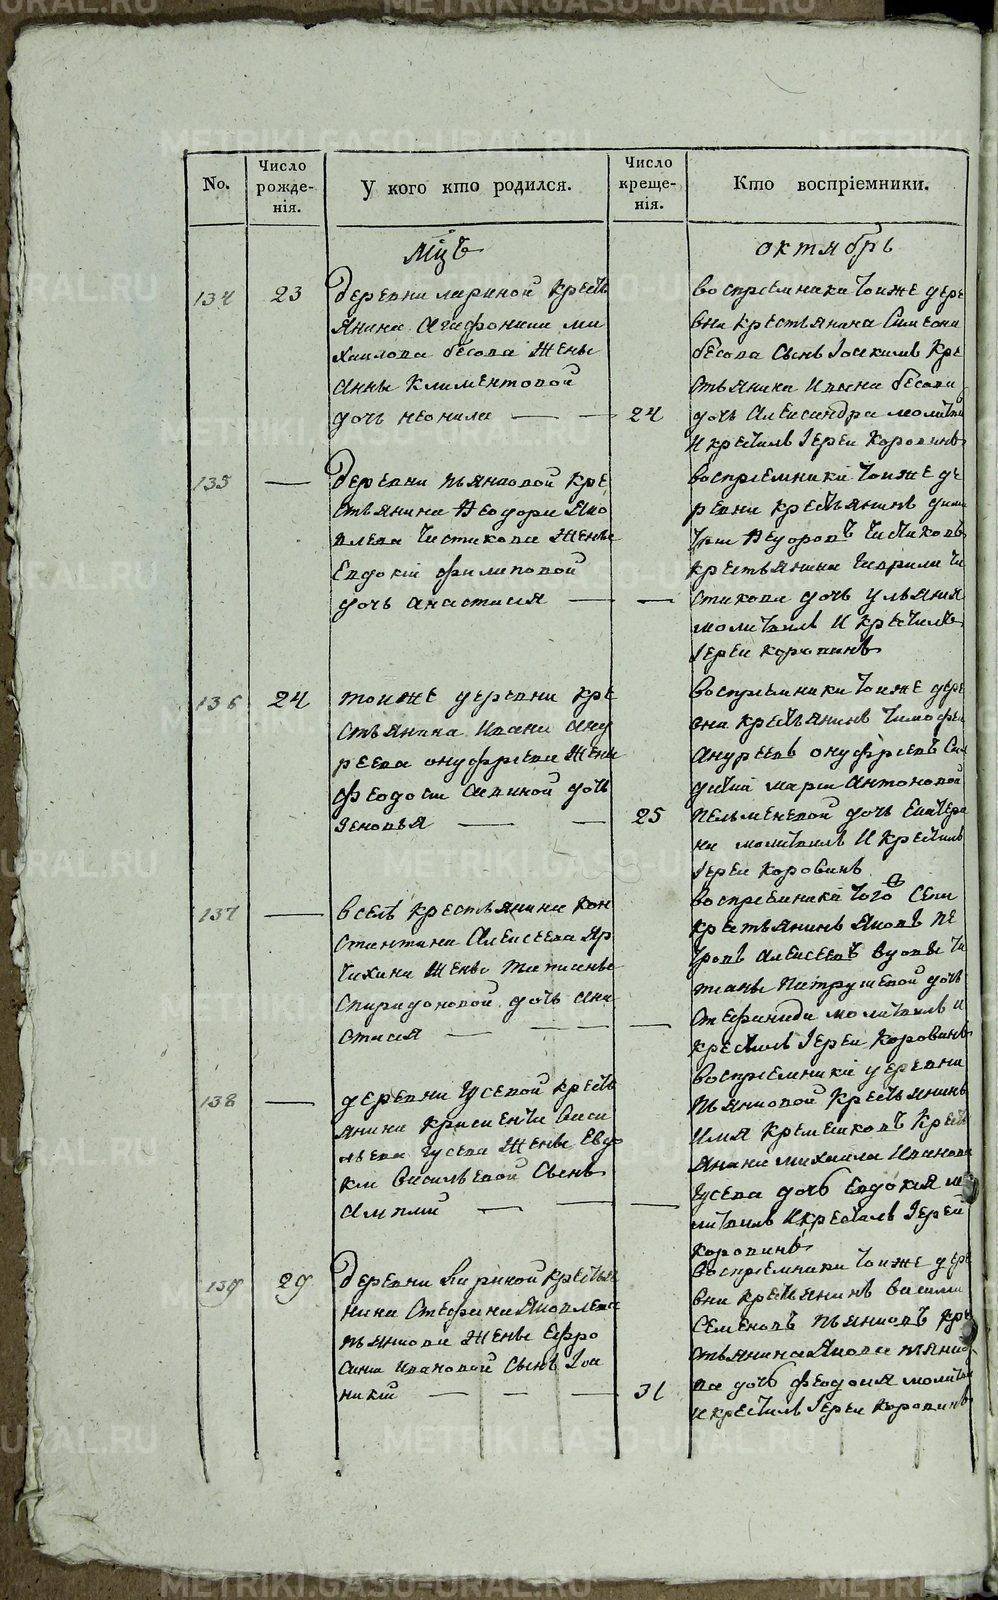 No.
Число рожде-
нія.
У кого кто родился.
Число креще-
нія.
Кто воспріемники.
Мцъ
октябрь
134
23
деревни лариной кресть
янина Агафоника ми
хаилова бесова жены
Анны Климентовой
дочь неонила
24
воспріемники тоиже дере
вни крестьянина Симеона
бесова сынъ Іоакимъ кре
стьянина Ивана бесова
дочь Александра молитви
и крестилъ Іереи Коровинъ
135
деревни пьянковой кре
стьянина Ѳеодора Яко
влева Чистикова жены
Евдокіи филиповой
дочь анастасія
воспріемники тоиже де
ревни крестьянинъ дими
трій Ѳедоровъ Чистиковъ
крестьянина Гаврила Чи
стикова дочь ульяния
молитвилъ и крестилъ
Іереи коровинъ
136
24
тоиже деревни кре
стьянина Ивана анд
реева онуфріева жены
феодосьи савиной дочь
Зеновья
25
воспріемники тоиже дере
вни крестьянинъ тимофеи
андреевъ онуфріевъ
марьи Антоновой
пельменевой дочь Екатери
на молитвилъ и крестилъ
Іереи коровинъ
137
в селѣ крестьянина кон
стантина Алексеева Яр
тихина жены татианы
спиридоновой дочь ана
стасія
воспріемники того Села
крестьянинъ Яковъ пе
тровъ алексеевъ вдовы та
тианы Патрушевой дочь
стефанида молитвилъ и
крестилъ Іереи коровинъ
138
деревни Гусевой кресть
янина Васи
льева Гусева жены Евдо
кіи васильевой сынъ
воспріемники деревни
пьянковой крестьянинъ
Илья Кремешковъ крест
янина михаила Иванова
Гусева дочь Евдокія мо
литвилъ и крестилъ Іереи
коровинъ
139
29
деревни лариной крестья
нина Стефана Яковлева
пьянкова жены Ефро
синьи Ивановой сынъ Іоа
никіи
31
воспріемники тоиже дере
вни крестьянинъ василіи
Семеновъ пьянковъ кре
стьянина Якова пьянко
ва дочь феодосія молитви
и крестилъ Іереи коровинъ
METRIKI.GASO-URAL.RU